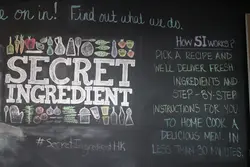 e on in! Find out what we do.
SECRET
INGREDIENT
#SecretIngredientHK
HOW SI WORKS?
PICK A RECIPE AND
WE'LL DELIVER FRESH
INGREDIENTS AND
STEP-BY-STEP
INSTRUCTIONS FOR YOU
TO HOME COOK A
DELICIOUS MEAL IN
LESS THAN 30 MINUTES